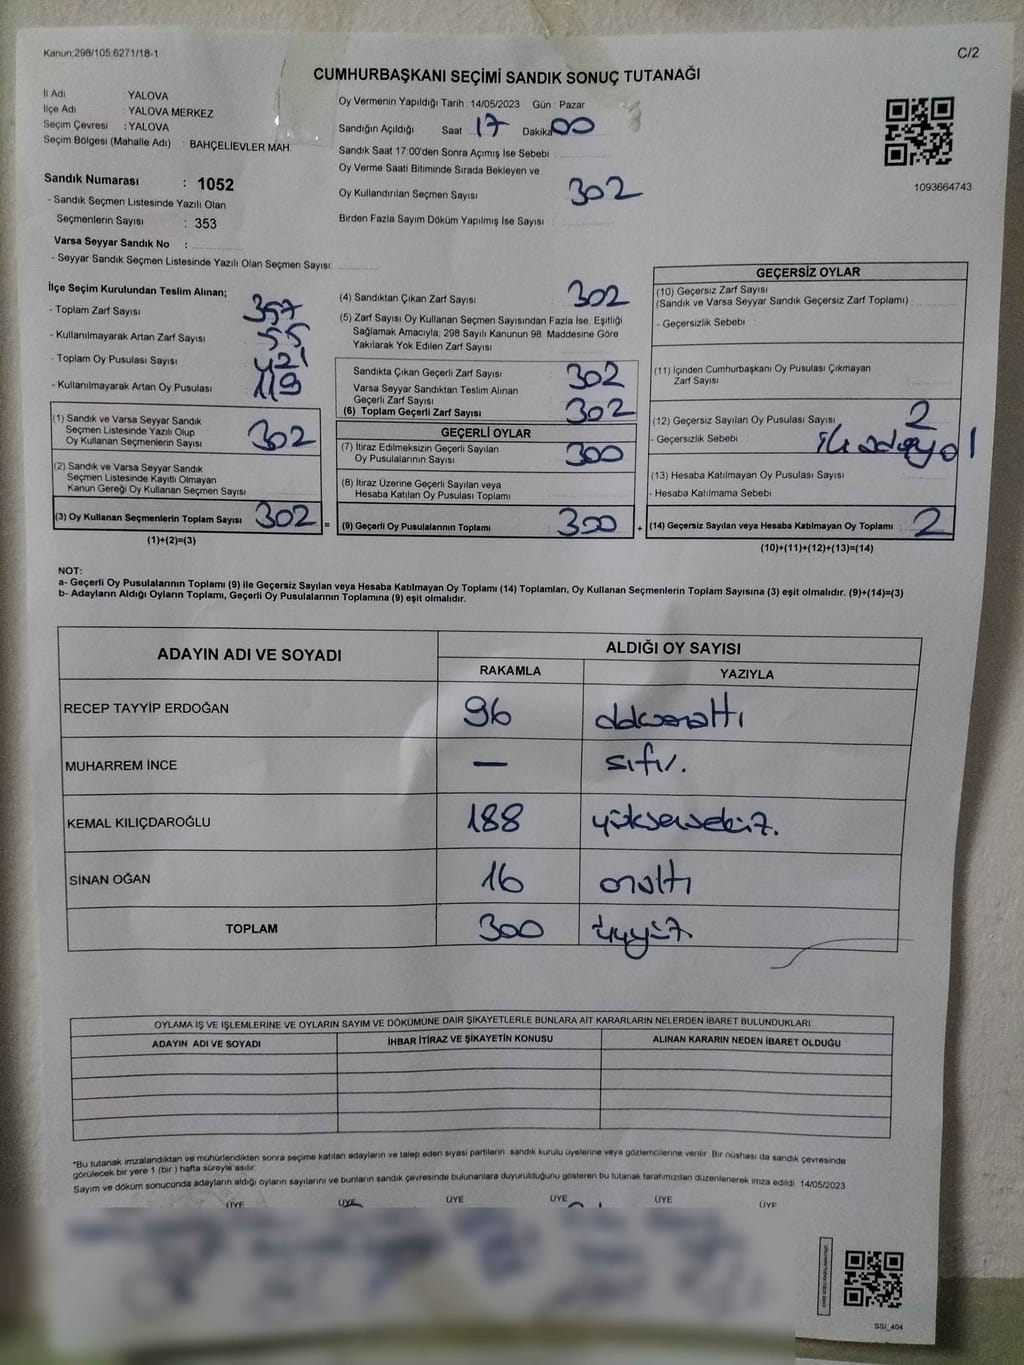 Kanun;298/105,6271/18-1
C/2
CUMHURBAŞKANI SEÇİMİ SANDIK SONUÇ TUTANAĞI
İl Adı YALOVA
İlçe Adı YALOVA MERKEZ
Seçim Çevresi : YALOVA
Seçim Bölgesi (Mahalle Adı) : BAHÇELİEVLER MAH.
Oy Vermenin Yapıldığı Tarih : 14/05/2023 Gün : Pazar
Sandığın Açıldığı Saat 17 Dakika 00
Sandık Saat 17:00'den Sonra Açımış İse Sebebi :
Oy Verme Saati Bitiminde Sırada Bekleyen ve
Oy Kullandırılan Seçmen Sayısı 302
Birden Fazla Sayım Döküm Yapılmış İse Sayısı :
1093664743
Sandık Numarası : 1052
- Sandık Seçmen Listesinde Yazılı Olan
Seçmenlerin Sayısı : 353
Varsa Seyyar Sandık No :
- Seyyar Sandık Seçmen Listesinde Yazılı Olan Seçmen Sayısı:
İlçe Seçim Kurulundan Teslim Alınan;
- Toplam Zarf Sayısı 357
- Kullanılmayarak Artan Zarf Sayısı 55
- Toplam Oy Pusulası Sayısı 421
- Kullanılmayarak Artan Oy Pusulası 119
(1) Sandık ve Varsa Seyyar Sandık
Seçmen Listesinde Yazılı Olup
Oy Kullanan Seçmenlerin Sayısı 302
(2) Sandık ve Varsa Seyyar Sandık
Seçmen Listesinde Kayıtlı Olmayan
Kanun Gereği Oy Kullanan Seçmen Sayısı
(3) Oy Kullanan Seçmenlerin Toplam Sayısı 302 =
(1)+(2)=(3)
(4) Sandıktan Çıkan Zarf Sayısı 302
(5) Zarf Sayısı Oy Kullanan Seçmen Sayısından Fazla İse, Eşitliği
Sağlamak Amacıyla, 298 Sayılı Kanunun 98. Maddesine Göre
Yakılarak Yok Edilen Zarf Sayısı
Sandıkta Çıkan Geçerli Zarf Sayısı 302
Varsa Seyyar Sandıktan Teslim Alınan
Geçerli Zarf Sayısı
(6) Toplam Geçerli Zarf Sayısı 302
GEÇERLİ OYLAR
(7) İtiraz Edilmeksizin Geçerli Sayılan
Oy Pusulalarının Sayısı 300
(8) İtiraz Üzerine Geçerli Sayılan veya
Hesaba Katılan Oy Pusulası Toplamı
(9) Geçerli Oy Pusulalarının Toplamı 300 +
GEÇERSİZ OYLAR
(10) Geçersiz Zarf Sayısı
(Sandık ve Varsa Seyyar Sandık Geçersiz Zarf Toplamı)
- Geçersizlik Sebebi
(11) İçinden Cumhurbaşkanı Oy Pusulası Çıkmayan
Zarf Sayısı
(12) Geçersiz Sayılan Oy Pusulası Sayısı 2
- Geçersizlik Sebebi
(13) Hesaba Katılmayan Oy Pusulası Sayısı
- Hesaba Katılmama Sebebi
(14) Geçersiz Sayılan veya Hesaba Katılmayan Oy Toplamı 2
(10)+(11)+(12)+(13)=(14)
NOT:
a- Geçerli Oy Pusulalarının Toplamı (9) ile Geçersiz Sayılan veya Hesaba Katılmayan Oy Toplamı (14) Toplamları, Oy Kullanan Seçmenlerin Toplam Sayısına (3) eşit olmalıdır. (9)+(14)=(3)
b- Adayların Aldığı Oyların Toplamı, Geçerli Oy Pusulalarının Toplamına (9) eşit olmalıdır.
ADAYIN ADI VE SOYADI
ALDIĞI OY SAYISI
RAKAMLA YAZIYLA
RECEP TAYYİP ERDOĞAN 96 doksanaltı
MUHARREM İNCE — sıfır.
KEMAL KILIÇDAROĞLU 188 yüksensekiz.
SİNAN OĞAN 16 onaltı
TOPLAM 300 üçyüz.
OYLAMA İŞ VE İŞLEMLERİNE VE OYLARIN SAYIM VE DÖKÜMÜNE DAİR ŞİKAYETLERLE BUNLARA AİT KARARLARIN NELERDEN İBARET BULUNDUKLARI
ADAYIN ADI VE SOYADI İHBAR İTİRAZ VE ŞİKAYETİN KONUSU ALINAN KARARIN NEDEN İBARET OLDUĞU
*Bu tutanak imzalandıktan ve mühürlendikten sonra seçime katılan adayların ve talep eden siyasi partilerin sandık kurulu üyelerine veya gözlemcilerine verilir. Bir nüshası da sandık çevresinde
görülecek bir yere 1 (bir ) hafta süreyle asılır.
Sayım ve döküm sonucunda adayların aldığı oyların sayılarını ve bunların sandık çevresinde bulunanlara duyurulduğunu gösteren bu tutanak tarafımızdan düzenlenerek imza edildi. 14/05/2023
ÜYE ÜYE ÜYE ÜYE ÜYE ÜYE
SSI_404